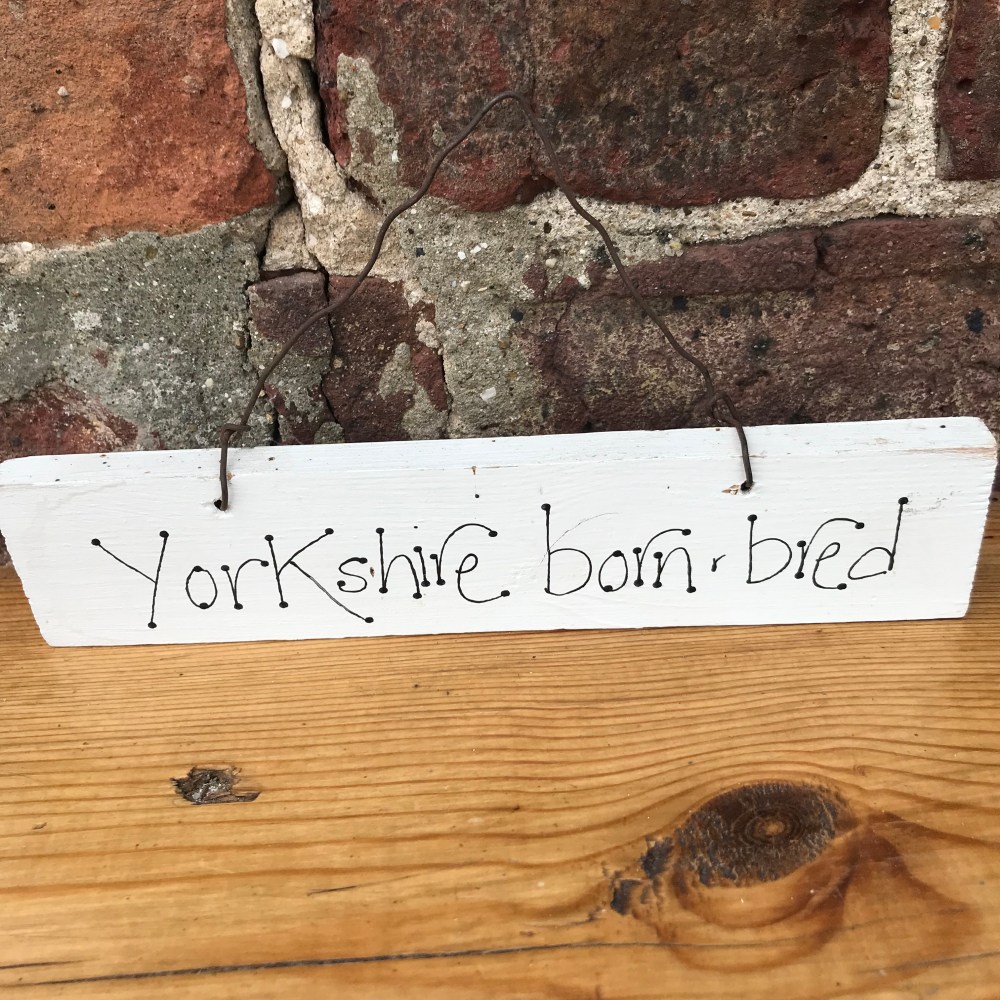 Yorkshire born · bred